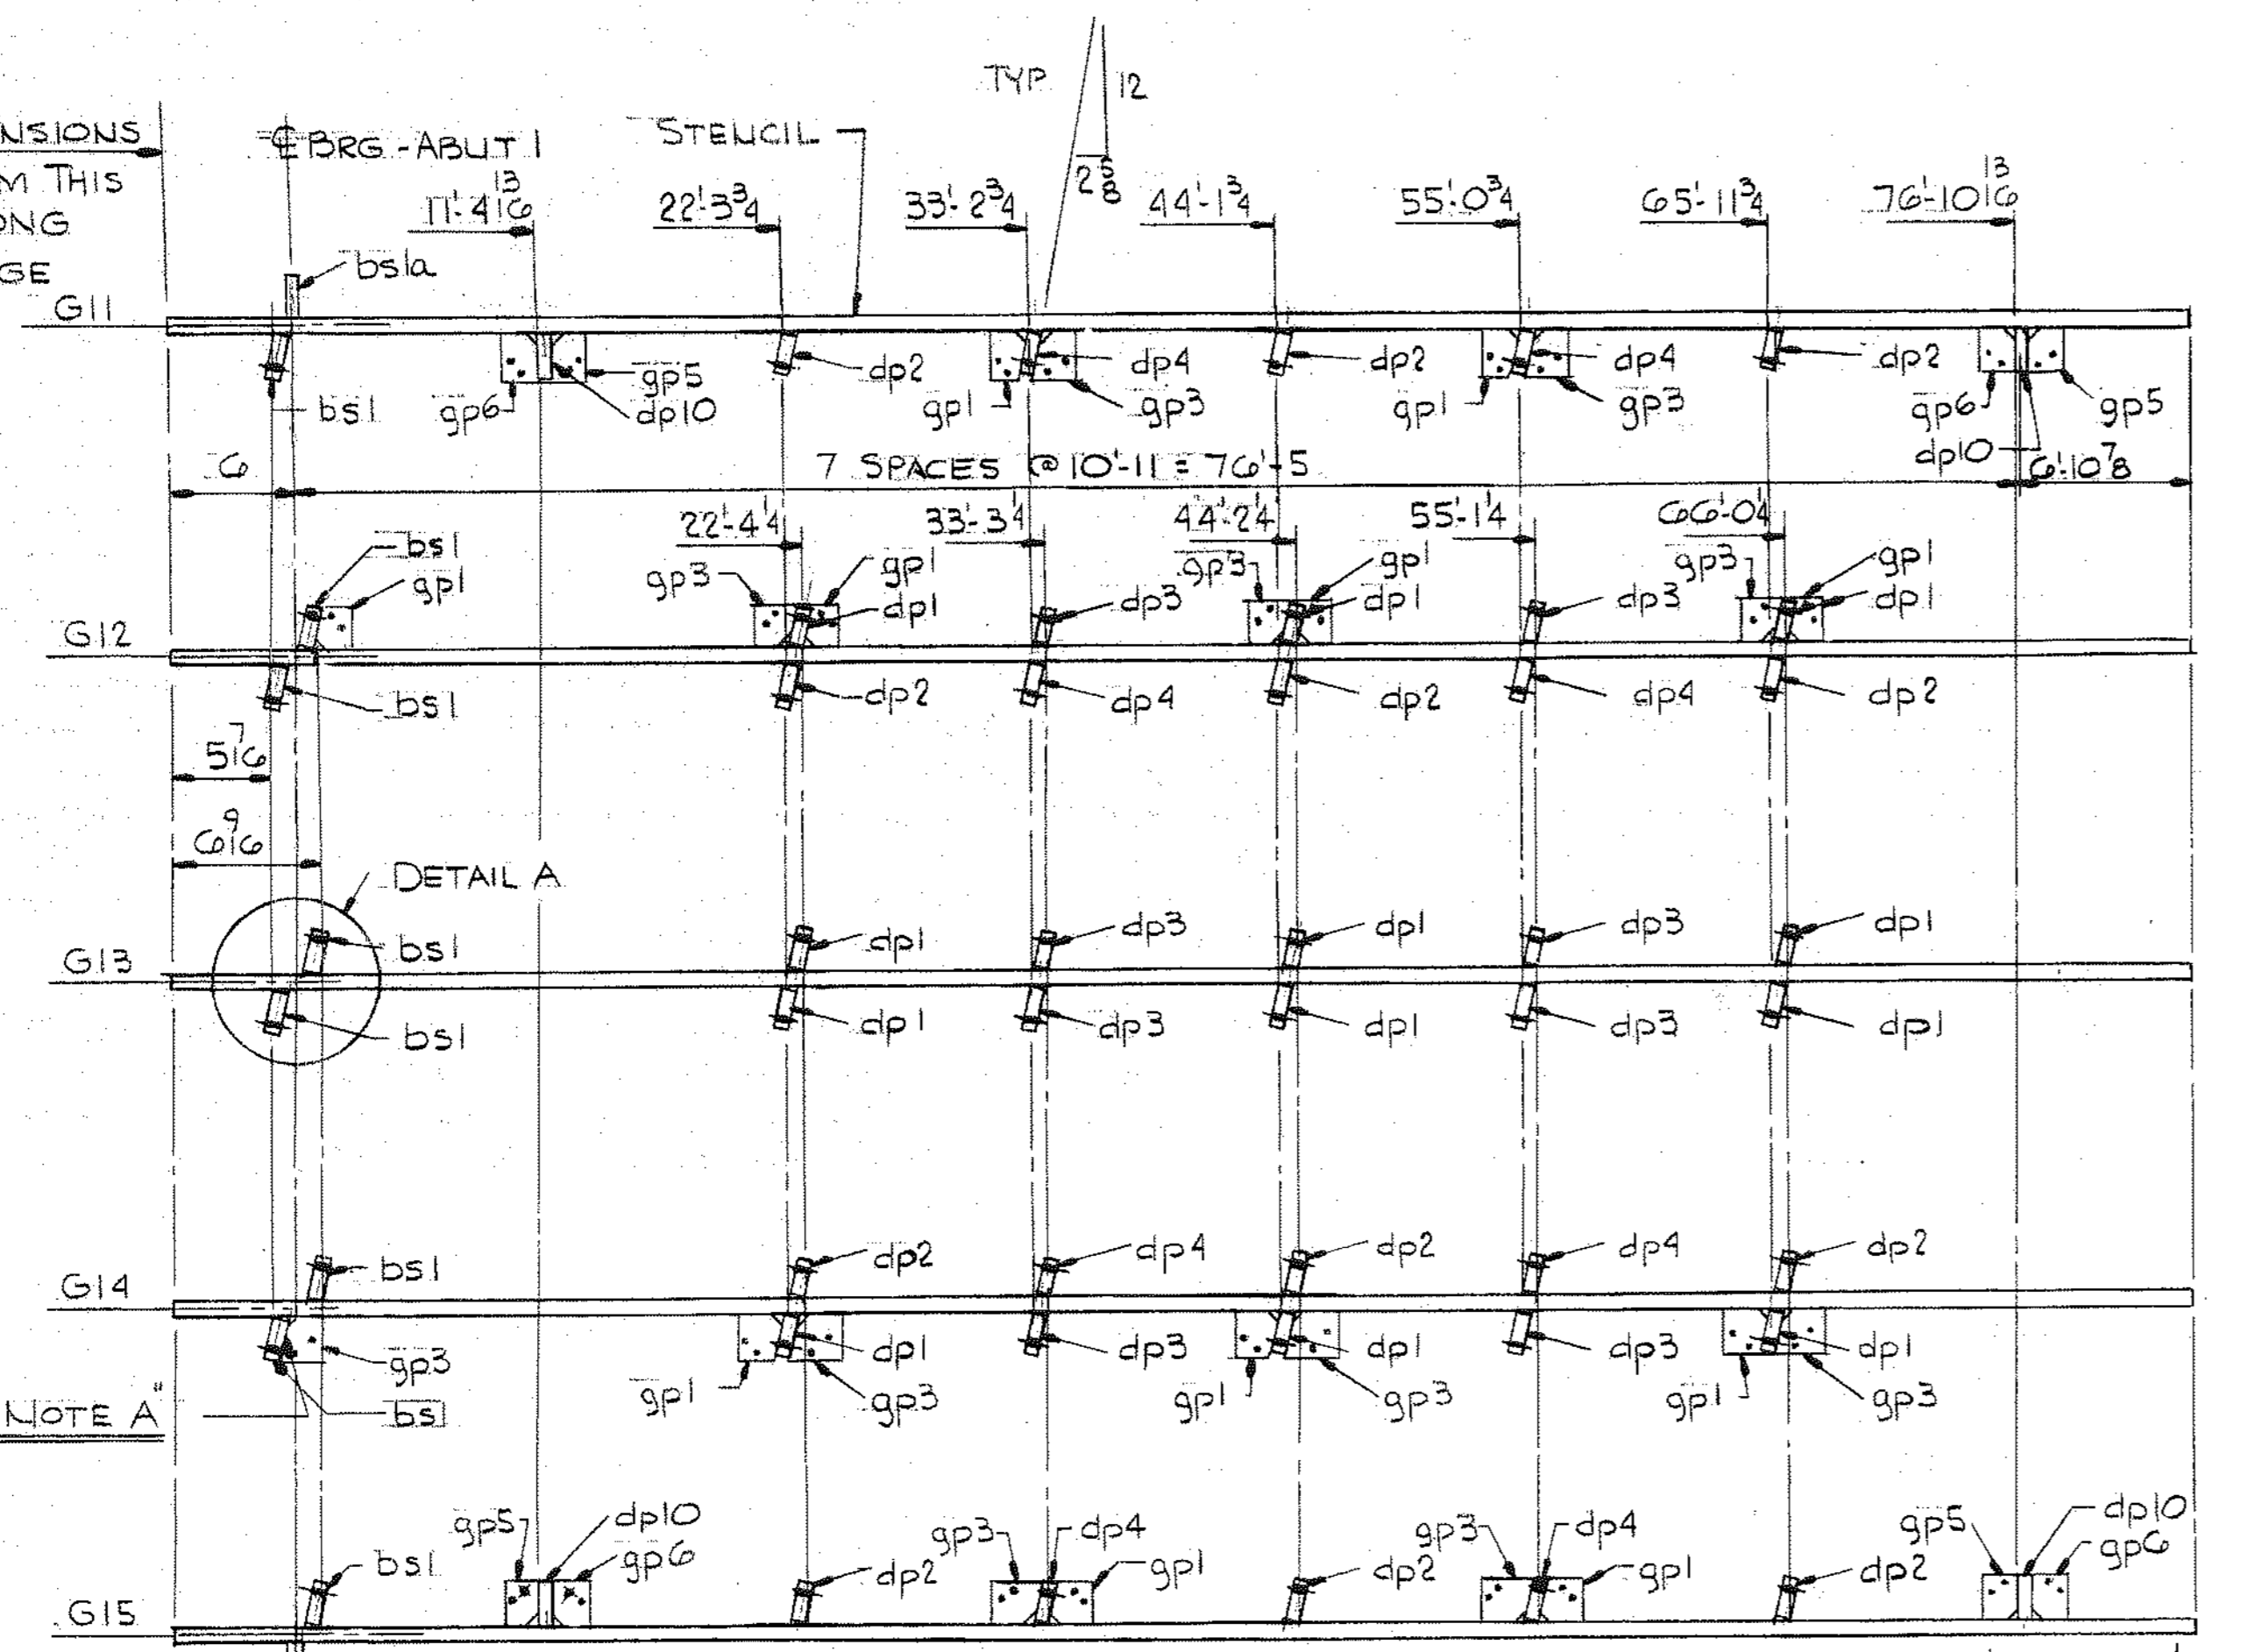 TYP
12
2 5/8
NSIONS
M THIS
ONG
GE
℄ BRG.-ABUT 1
STENCIL
11'-4 13/16
22'-3 3/4
33'-2 3/4
44'-1 3/4
55'-0 3/4
65'-11 3/4
76'-10 13/16
bs1a
G11
bs1
gp6
gp5
dp10
dp2
gp1
dp4
gp3
dp2
gp1
dp4
gp3
dp2
gp6
gp5
dp10
6
7 SPACES @ 10'-11 = 76'-5
6'-10 7/8
22'-4 1/4
33'-3 1/4
44'-2 1/4
55'-1 1/4
66'-0 1/4
bs1
gp1
gp3
gp1
dp1
dp3
gp3
gp1
dp1
dp3
gp3
gp1
dp1
G12
bs1
dp2
dp4
dp2
dp4
dp2
5 7/16
6 9/16
DETAIL A
bs1
dp1
dp3
dp1
dp3
dp1
G13
bs1
dp1
dp3
dp1
dp3
dp1
bs1
dp2
dp4
dp2
dp4
dp2
G14
gp3
dp1
dp3
dp1
dp3
dp1
NOTE A"
bs1
gp1
gp3
gp1
gp3
gp1
gp3
bs1
gp5
dp10
gp6
dp2
gp3
dp4
gp1
dp2
gp3
dp4
gp1
dp2
gp5
dp10
gp6
G15